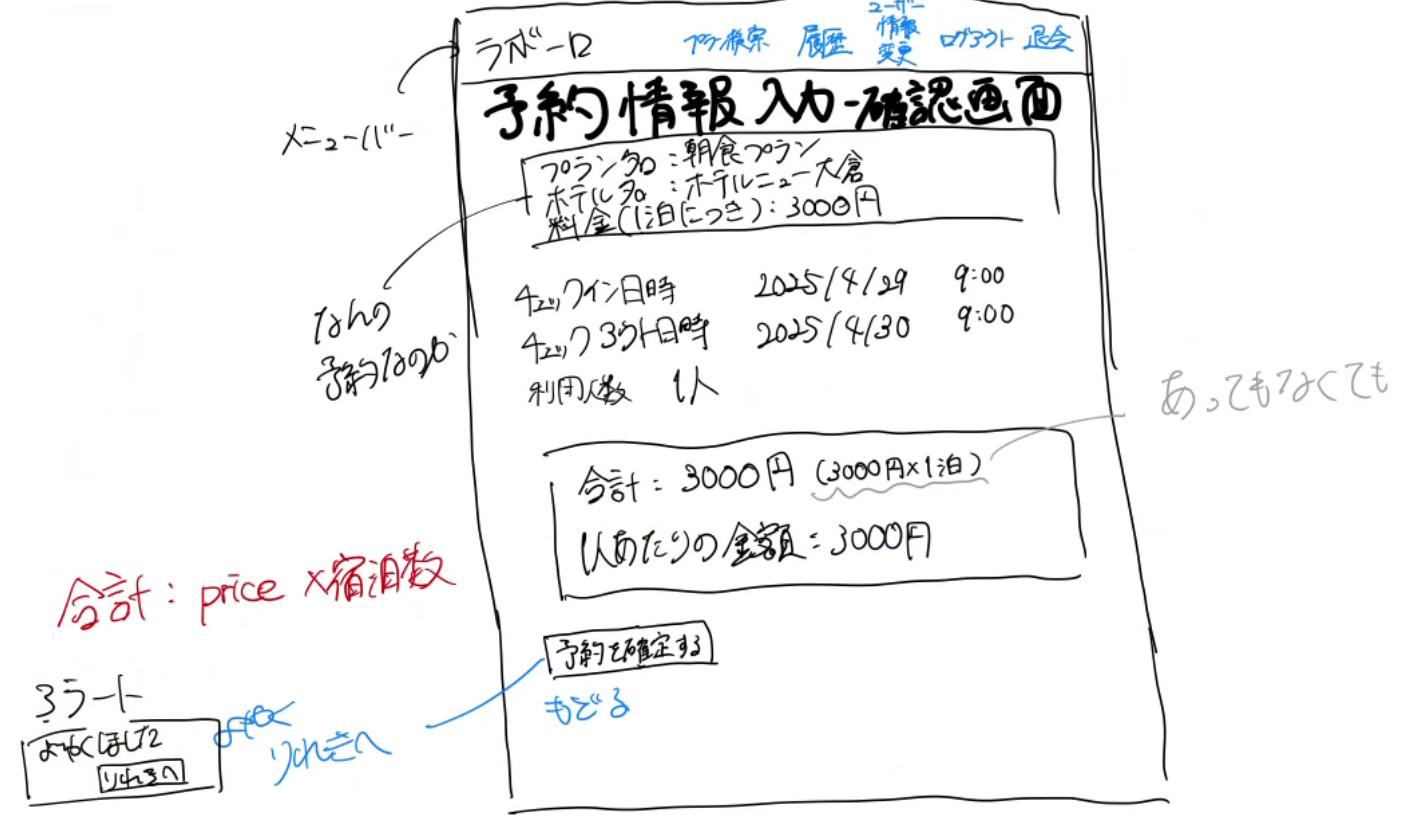 ラボーロ プラン検索 履歴 ユーザー情報変更 ログアウト 退会
メニューバー
予約情報入力-確認画面
プラン名:朝食プラン
ホテル名:ホテルニュー大倉
料金(1泊につき):3000円
なんの
予約なのか
チェックイン日時 2025/4/29 9:00
チェックアウト日時 2025/4/30 9:00
利用人数 1人
あってもなくても
合計:3000円 (3000円×1泊)
1人あたりの金額:3000円
合計:price×宿泊数
予約を確定する
もどる
アラート
よやくしました
りれきへ
りれきへ